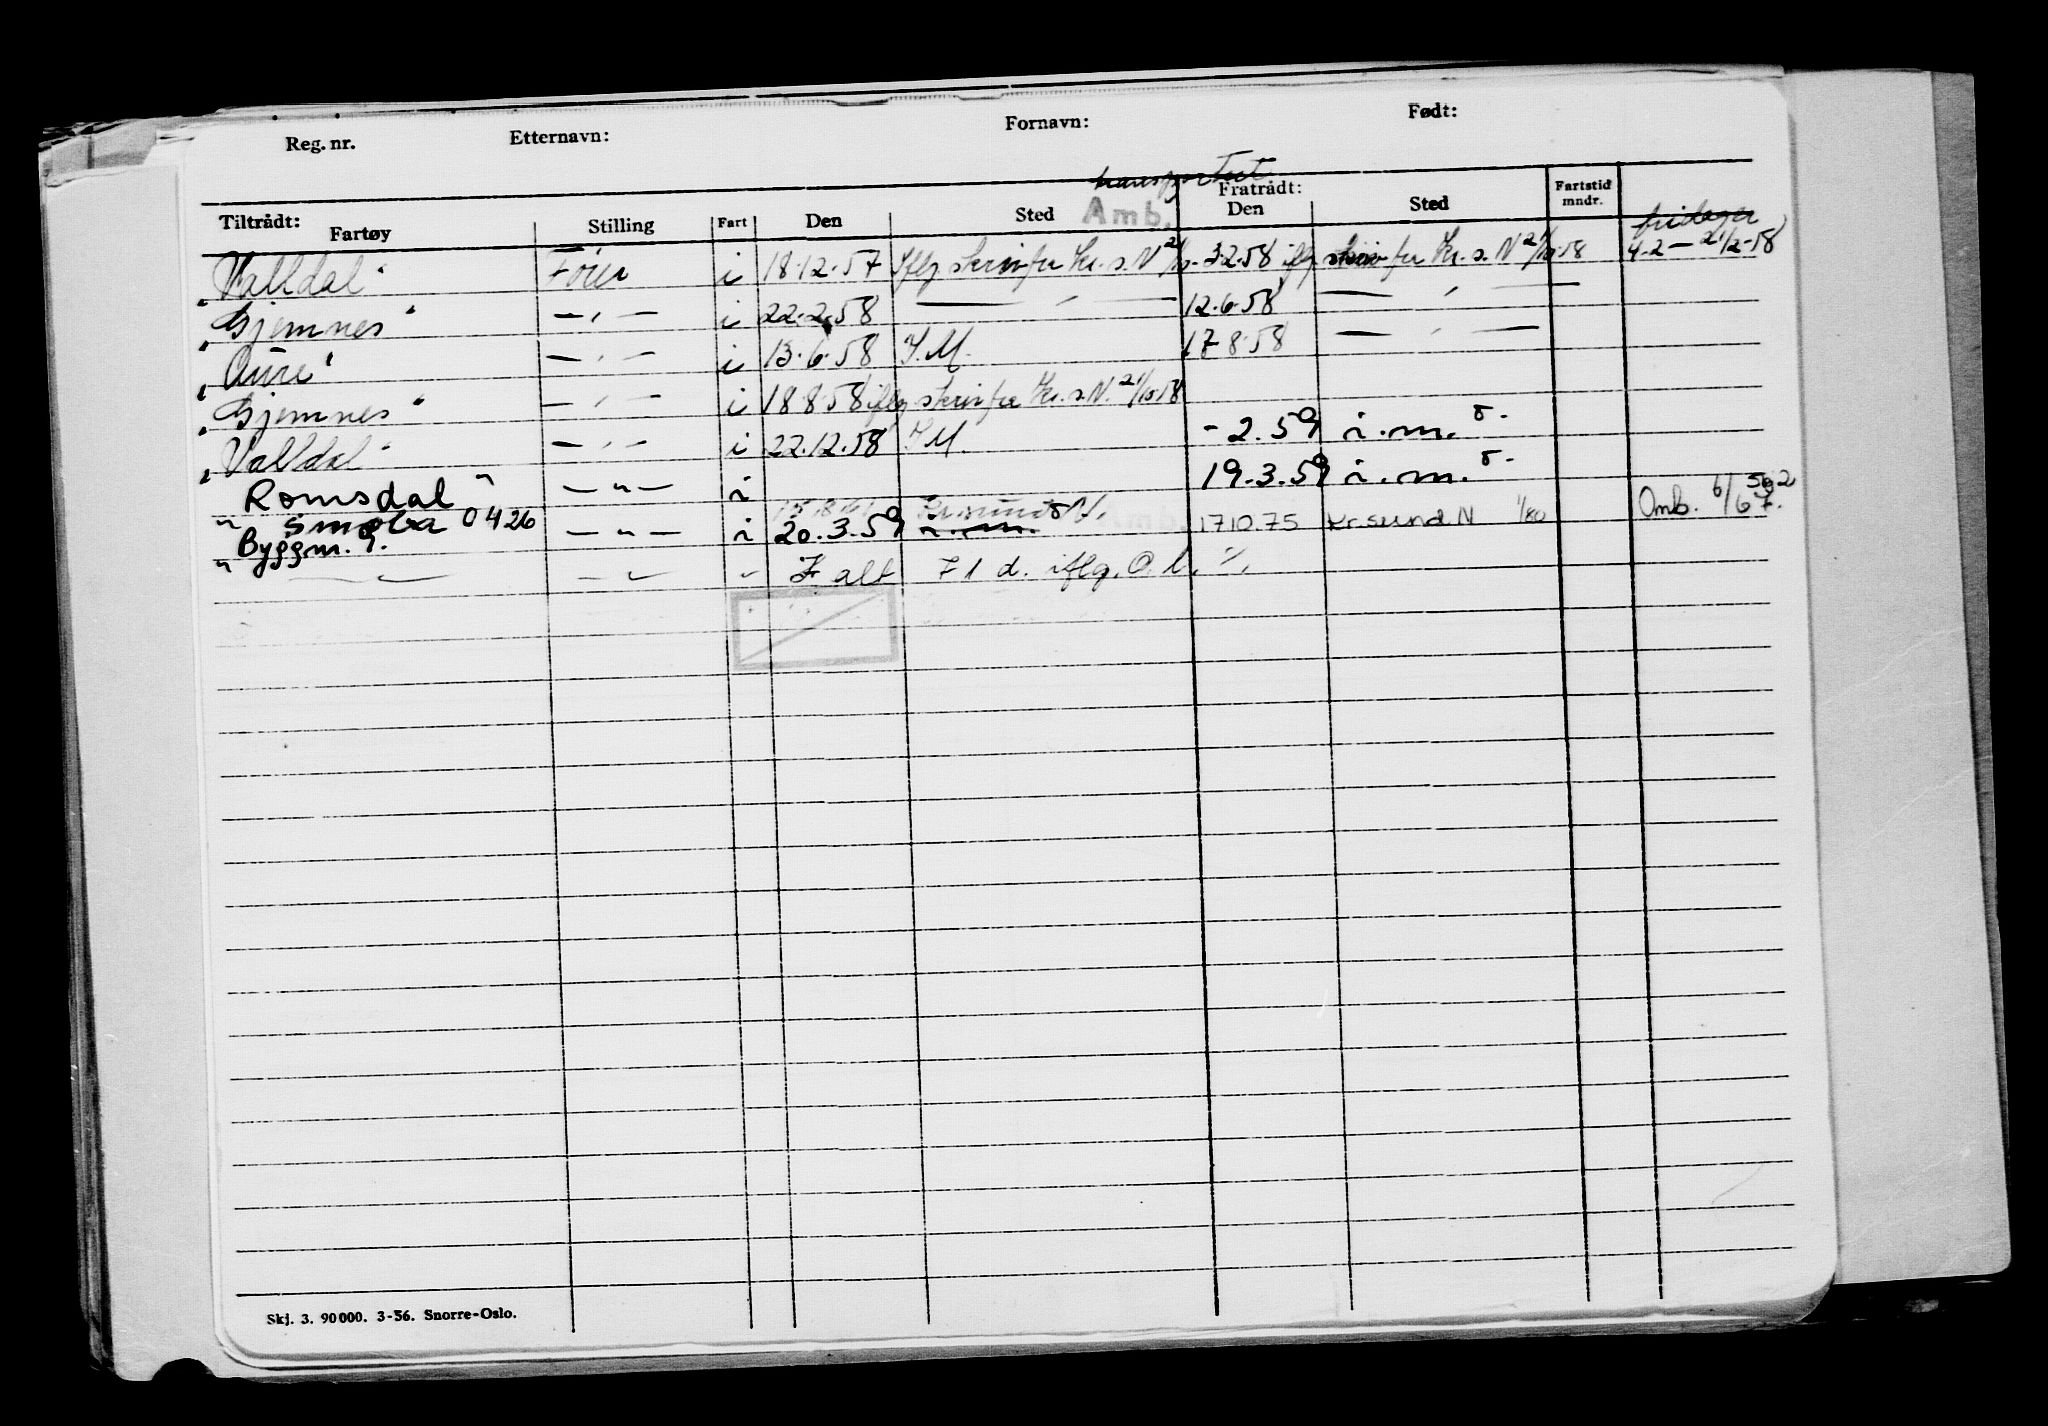 Reg. nr. Etternavn: Fornavn: Født:
transportert
Tiltrådt: Fratrådt:
Fartøy Stilling Fart Den Sted Amb. Den Sted Fartstid mndr. fridager
"Valldal" Fører i 18.12.57 Iflg skriv fra Kr.s.N 21/10- 3.2.58 iflg skriv fra Kr.s.N 21/10 58 4.2 - 21/2-58
"Gjemnes" — " — i 22.2.58 — " — 12.6.58 — " —
"Aure" — " — i 13.6.58 I.M. 17.8.58 — " —
"Gjemnes" — " — i 18.8.58 iflg skriv fra Kr.s.N. 21/10.58
"Valldal" — " — i 22.12.58 I.M. - 2.59 i.m.
"Romsdal" — " — i 19.3.59 i.m.
Smøla 0426
" Byggm. — " — i 20.3.59 i.m. 17.10.75 Kr.sund N 1/80 Omb. 6/67.
I alt 71 d. iflg. O.l. %.
Skj. 3. 90000. 3-56. Snorre-Oslo.